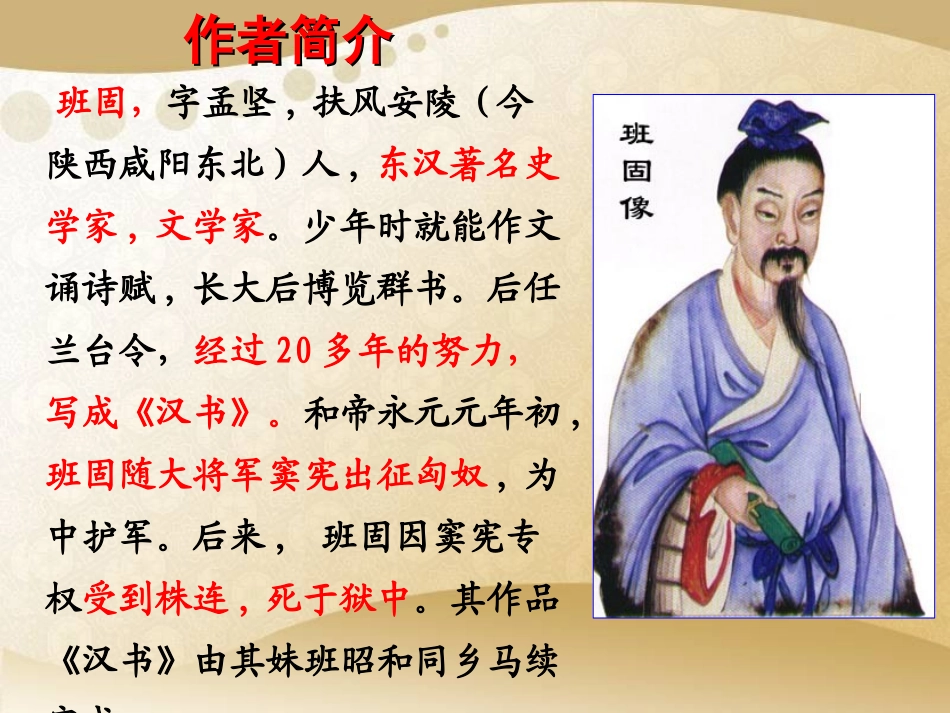 作者简介
班固，字孟坚,扶风安陵（今
陕西咸阳东北）人,东汉著名史
学家,文学家。少年时就能作文
诵诗赋,长大后博览群书。后任
兰台令，经过20多年的努力，
写成《汉书》。和帝永元元年初,
班固随大将军窦宪出征匈奴,为
中护军。后来, 班固因窦宪专
权受到株连,死于狱中。其作品
《汉书》由其妹班昭和同乡马续
班固像